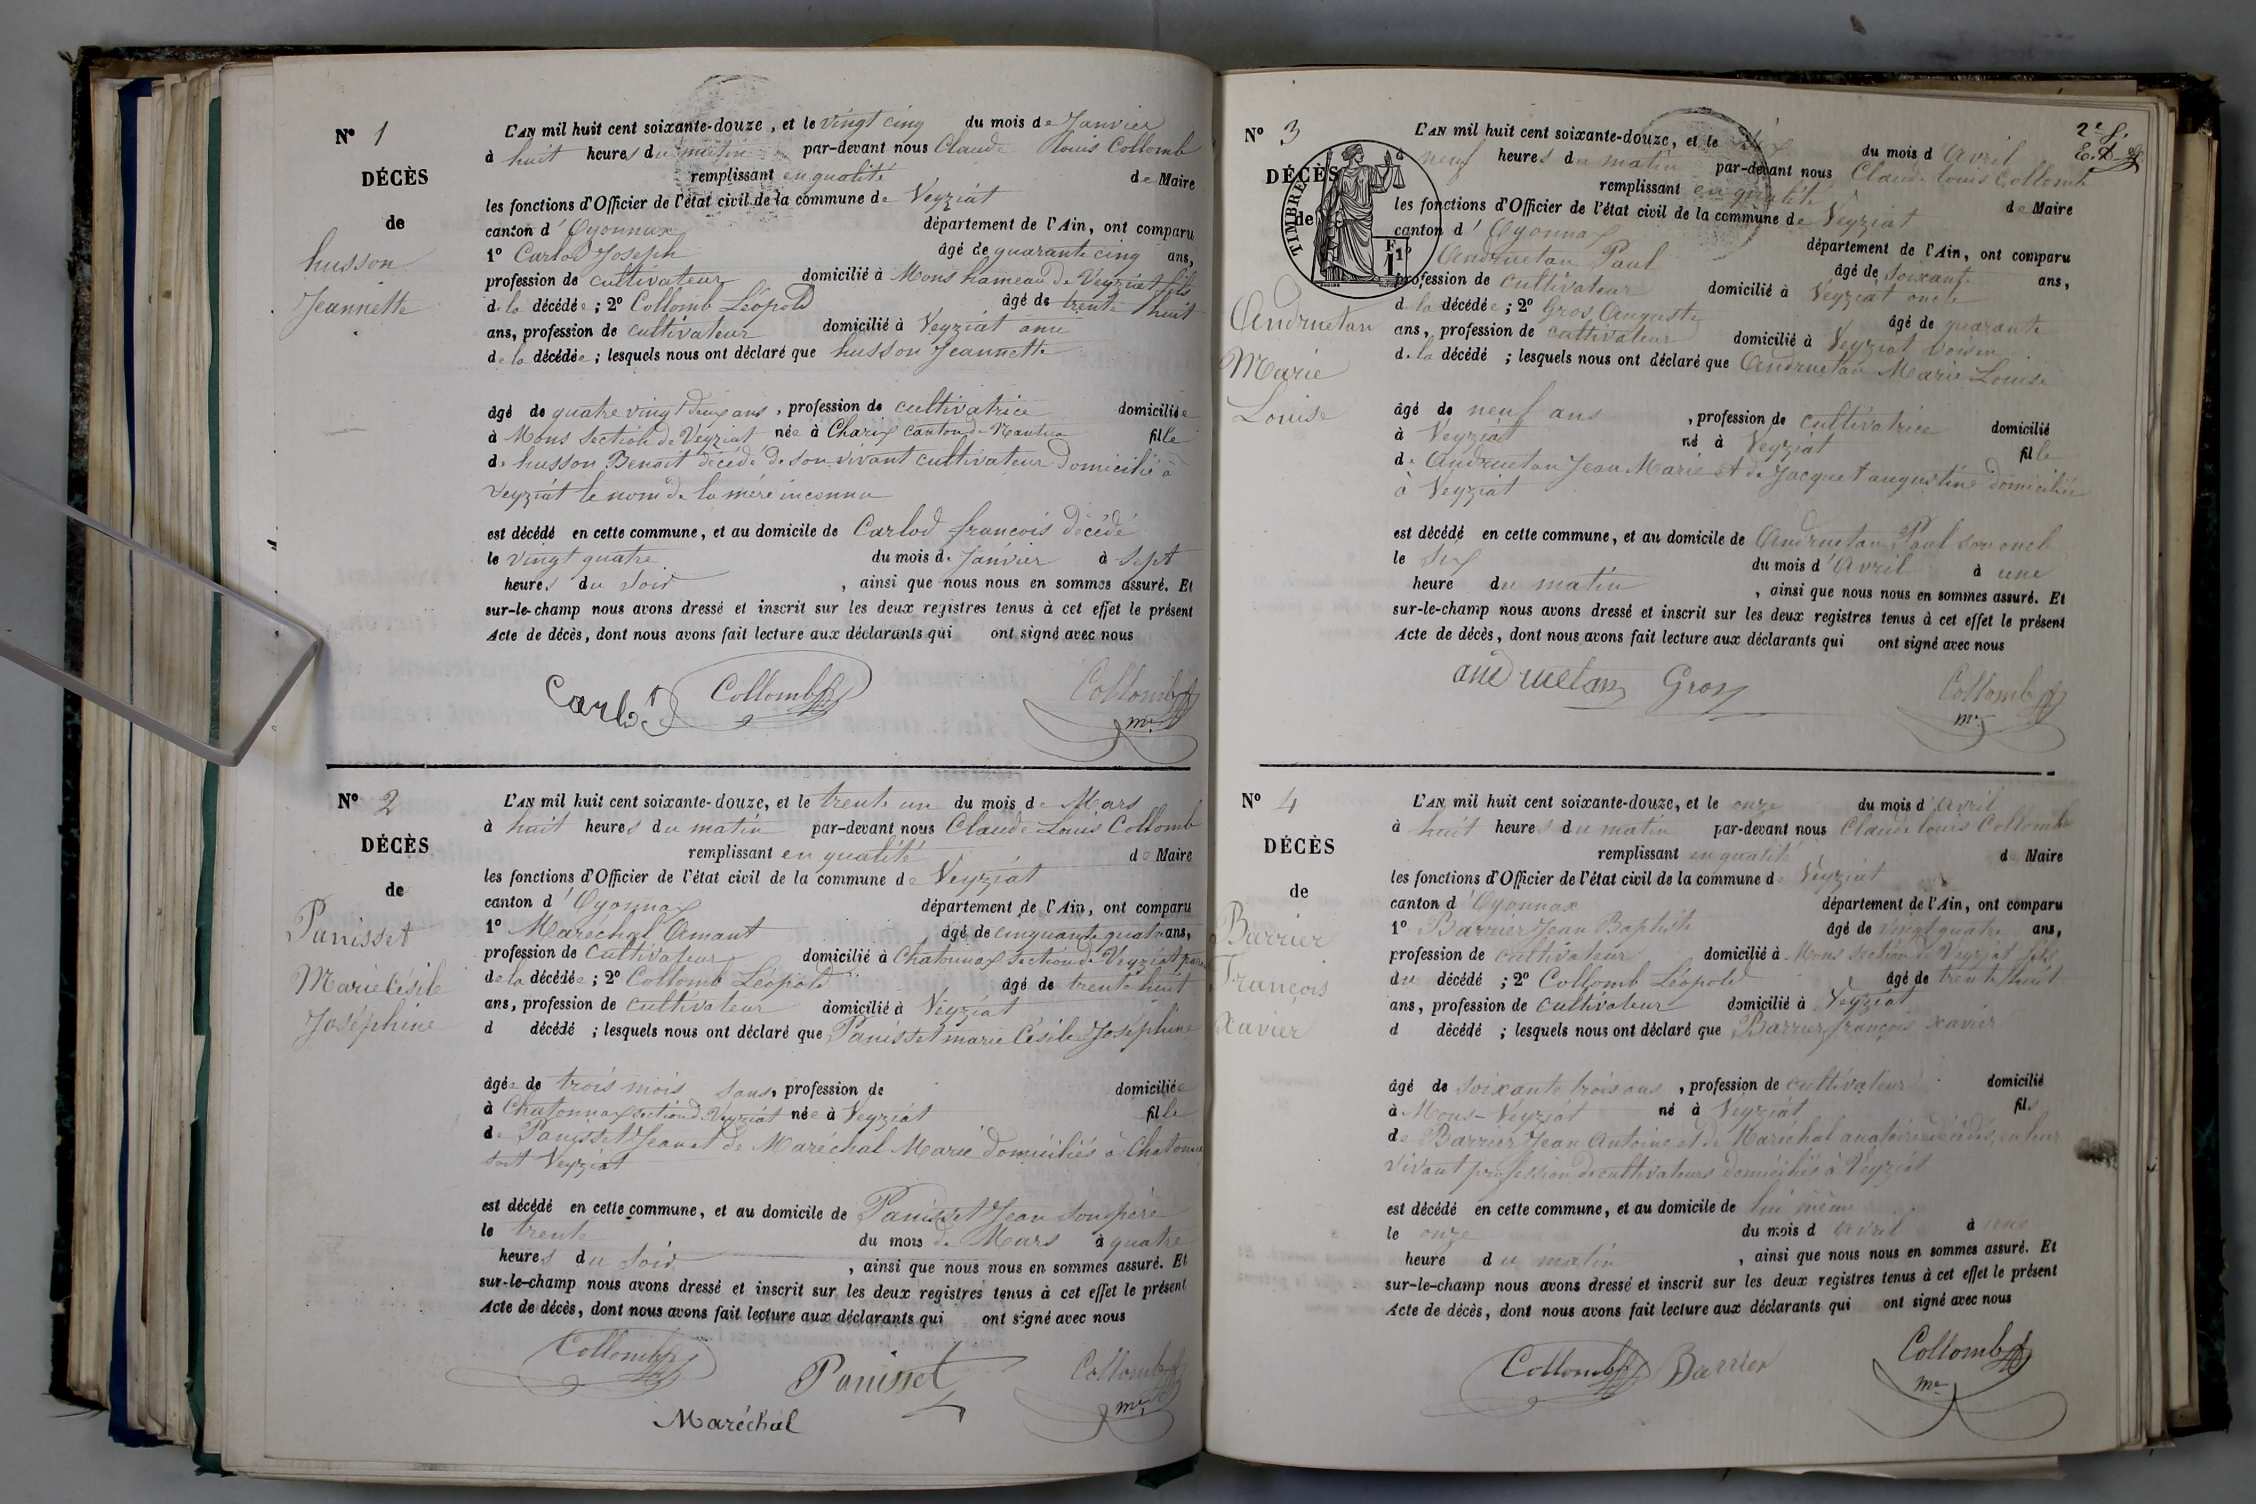 N° 1
DÉCÈS
de
husson
Jeannette
L'AN mil huit cent soixante-douze, et le vingt cinq du mois de Janvier
à huit heures du matin par-devant nous Claude Louis Collomb
remplissant en qualité de Maire
les fonctions d'Officier de l'état civil de la commune de Veyziat
canton d'Oyonnax département de l'Ain, ont comparu
1° Carlod Joseph âgé de quarante cinq ans,
profession de cultivateur domicilié à Mons hameau de Veyziat fils
de la décédée ; 2° Collomb Léopold âgé de trente huit
ans, profession de cultivateur domicilié à Veyziat ami
de la décédée ; lesquels nous ont déclaré que husson Jeannette
âgé de quatre vingt deux ans, profession de cultivatrice domiciliée
à Mons section de Veyziat née à Charix canton de Nantua fille
de husson Benoit décédé de son vivant cultivateur domicilié à
Veyziat le nom de la mère inconnu
est décédé en cette commune, et au domicile de Carlod françois décédé
le vingt quatre du mois de Janvier à sept
heures du soir, ainsi que nous nous en sommes assuré. Et
sur-le-champ nous avons dressé et inscrit sur les deux registres tenus à cet effet le présent
Acte de décès, dont nous avons fait lecture aux déclarants qui ont signé avec nous
Carlod Collomb Collomb
mre
N° 2
DÉCÈS
de
Panisset
Marie Césile
Joséphine
L'AN mil huit cent soixante-douze, et le trente un du mois de Mars
à huit heures du matin par-devant nous Claude Louis Collomb
remplissant en qualité de Maire
les fonctions d'Officier de l'état civil de la commune de Veyziat
canton d'Oyonnax département de l'Ain, ont comparu
1° Maréchal Amant âgé de cinquante quatre ans,
profession de cultivateur domicilié à Chatonnax section de Veyziat
de la décédée ; 2° Collomb Léopold âgé de trente huit
ans, profession de cultivateur domicilié à Veyziat
d décédé ; lesquels nous ont déclaré que Panisset marie Césile Joséphine
âgée de trois mois sans, profession de domiciliée
à Chatonnax section de Veyziat née à Veyziat fille
de Panisset Jean et de Maréchal Marie domiciliés à Chatonnax
Veyziat
est décédé en cette commune, et au domicile de Panisset Jean son père
le trente du mois de Mars à quatre
heures du soir, ainsi que nous nous en sommes assuré. Et
sur-le-champ nous avons dressé et inscrit sur les deux registres tenus à cet effet le présent
Acte de décès, dont nous avons fait lecture aux déclarants qui ont signé avec nous
Collomb Panisset Collomb
Maréchal mre
N° 3
DÉCÈS
de
TIMBRE
Andruetan
Marie
Louise
L'AN mil huit cent soixante-douze, et le six du mois d'Avril
à neuf heures du matin par-devant nous Claude Louis Collomb
remplissant en qualité de Maire
les fonctions d'Officier de l'état civil de la commune de Veyziat
canton d'Oyonnax département de l'Ain, ont comparu
1° Andruetan Paul âgé de soixante ans,
profession de cultivateur domicilié à Veyziat oncle
de la décédée ; 2° Gros Auguste âgé de quarante
ans, profession de cultivateur domicilié à Veyziat voisin
de la décédé ; lesquels nous ont déclaré que Andruetan Marie Louise
âgé de neuf ans, profession de cultivatrice domicilié
à Veyziat né à Veyziat fille
de Andruetan Jean Marie et de Jacquet augustine domiciliés
à Veyziat
est décédé en cette commune, et au domicile de Andruetan Paul son oncle
le six du mois d'Avril à une
heure du matin, ainsi que nous nous en sommes assuré. Et
sur-le-champ nous avons dressé et inscrit sur les deux registres tenus à cet effet le présent
Acte de décès, dont nous avons fait lecture aux déclarants qui ont signé avec nous
andruetan Gros Collomb
mre
N° 4
DÉCÈS
de
Barrier
François
Xavier
L'AN mil huit cent soixante-douze, et le onze du mois d'Avril
à huit heures du matin par-devant nous Claude Louis Collomb
remplissant en qualité de Maire
les fonctions d'Officier de l'état civil de la commune de Veyziat
canton d'Oyonnax département de l'Ain, ont comparu
1° Barrier Jean Baptiste âgé de vingt quatre ans,
profession de cultivateur domicilié à Mons section de Veyziat fils
du décédé ; 2° Collomb Léopold âgé de trente huit
ans, profession de cultivateur domicilié à Veyziat
d décédé ; lesquels nous ont déclaré que Barrier françois xavier
âgé de soixante trois ans, profession de cultivateur domicilié
à Mons-Veyziat né à Veyziat fils
de Barrier Jean Antoine et de Maréchal décédés en leur
vivant profession de cultivateurs domiciliés à Veyziat
est décédé en cette commune, et au domicile de lui même
le onze du mois d avril à une
heure du matin, ainsi que nous nous en sommes assuré. Et
sur-le-champ nous avons dressé et inscrit sur les deux registres tenus à cet effet le présent
Acte de décès, dont nous avons fait lecture aux déclarants qui ont signé avec nous
Collomb Barrier Collomb
mre